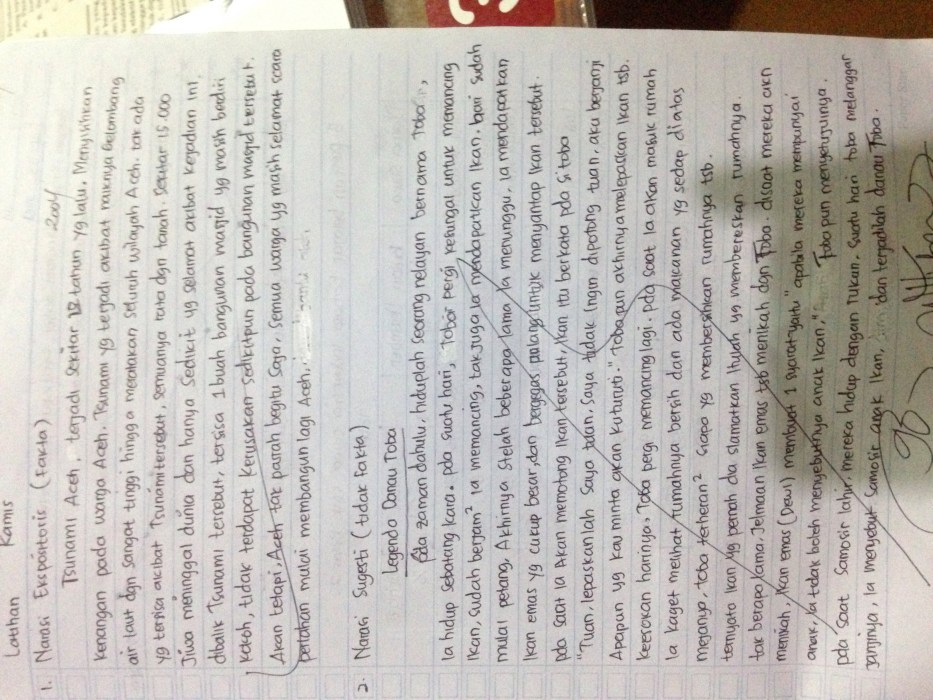 Latihan Kamis
1. Narasi Ekspositoris (Fakta)
2004
Tsunami Aceh, terjadi sekitar 12 tahun yg lalu. Menyisihkan
kenangan pada warga Aceh. Tsunami yg terjadi akibat naiknya Gelombang
air laut dgn sangat tinggi hingga meratakan seluruh wilayah Aceh. tak ada
yg tersisa akibat Tsunami tersebut, semuanya rata dgn tanah. Sekitar 15.000
Jiwa meninggal dunia dan hanya sedikit yg selamat akibat kejadian ini
dibalik Tsunami tersebut, tersisa 1 buah bangunan masjid yg masih berdiri
kokoh, tidak terdapat kerusakan sedikitpun pada bangunan masjid tersebut.
Akan tetapi, Aceh tak pasrah begitu saja, semua warga yg masih selamat scara
perlahan mulai membangun lagi Aceh.
2. Narasi Sugesti (tidak fakta)
Legenda Danau Toba
Pda zaman dahulu, hiduplah seorang nelayan bernama Toba,
Ia hidup sebatang kara. pda suatu hari, Toba pergi kesungai untuk memancing
Ikan, sudah berjam² ia memancing, tak juga Ia mendapatkan Ikan. hari sudah
mulai petang, Akhirnya stelah beberapa lama Ia menunggu, ia mendapatkan
Ikan emas yg cukup besar, dan bergegas pulang untuk menyantap Ikan tersebut.
pda saat Ia Akan memotong Ikan tersebut, Ikan itu berkata pda si toba
"Tuan, lepaskanlah saya tuan, saya tidak Ingin dipotong tuan, aku berjanji
Apapun yg kau minta akan kuturuti." Toba pun akhirnya melepaskan Ikan tsb.
keesokan harinya, Toba pergi memancing lagi. pda saat Ia akan masuk rumah
Ia kaget melihat rumahnya bersih dan ada makanan yg sedap diatas
mejanya, toba terheran² siapa yg membersihkan rumahnya tsb.
ternyata Ikan yg pernah dia slamatkan Itulah yg membereskan rumahnya.
tak berapa lama, Jelmaan Ikan emas tsb menikah dgn Toba. disaat mereka akn
menikah, Ikan emas (Dewi) membuat 1 syarat yaitu "apabila mereka mempunyai
anak, Ia tidak boleh menyebutnya anak Ikan," Toba pun menyetujuinya.
pda saat Samosir lahir, mereka hidup dengan rukun. Suatu hari toba melanggar
janjinya, Ia menyebut Samosir anak Ikan, dan terjadilah danau Toba.